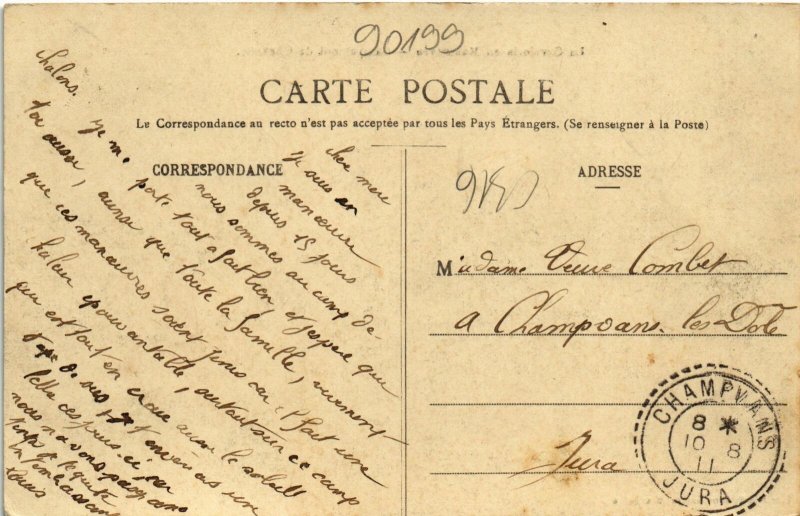 90199
CARTE POSTALE
Le Correspondance au recto n'est pas acceptée par tous les Pays Étrangers. (Se renseigner à la Poste)
CORRESPONDANCE
Chere mere
Je suis en
manœuvre
depuis 15 jours
nous sommes au camp de
chalons. Je me porte tout a fait bien et j'espere que
toi aussi, ainsi que toute la famille, vivement
que ces manœuvres soient finis car il fait une
chaleur epouvantable, surtout sur ce camp
qui est tout en craie avec le soleil
tape
lettre ces jours-ci car
nous n'avons pas
ADRESSE
Madame Veuve Combet
a Champvans-les-Dole
Jura
CHAMPVANS
8 *
10 8
11
JURA